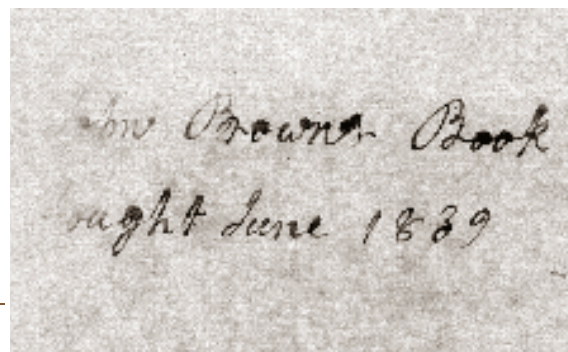 John Browns Book
bought June 1839